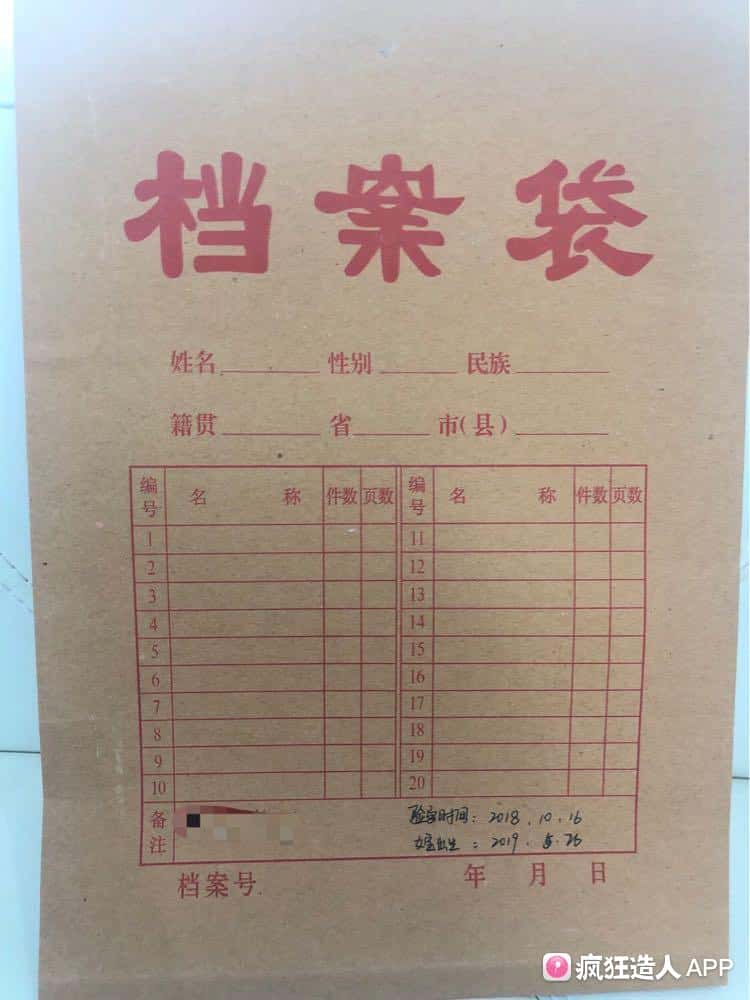 档案袋
姓名 性别 民族
籍贯 省 市(县)
编号 名 称 件数 页数 编号 名 称 件数 页数
1 11
2 12
3 13
4 14
5 15
6 16
7 17
8 18
9 19
10 20
备注
验孕时间：2018.10.16
女宝出生：2019.5.26
档案号 年 月 日
疯狂造人 APP